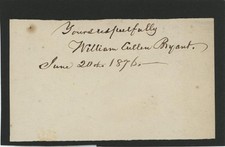 Yours respectfully
William Cullen Bryant.
June 20th 1876.